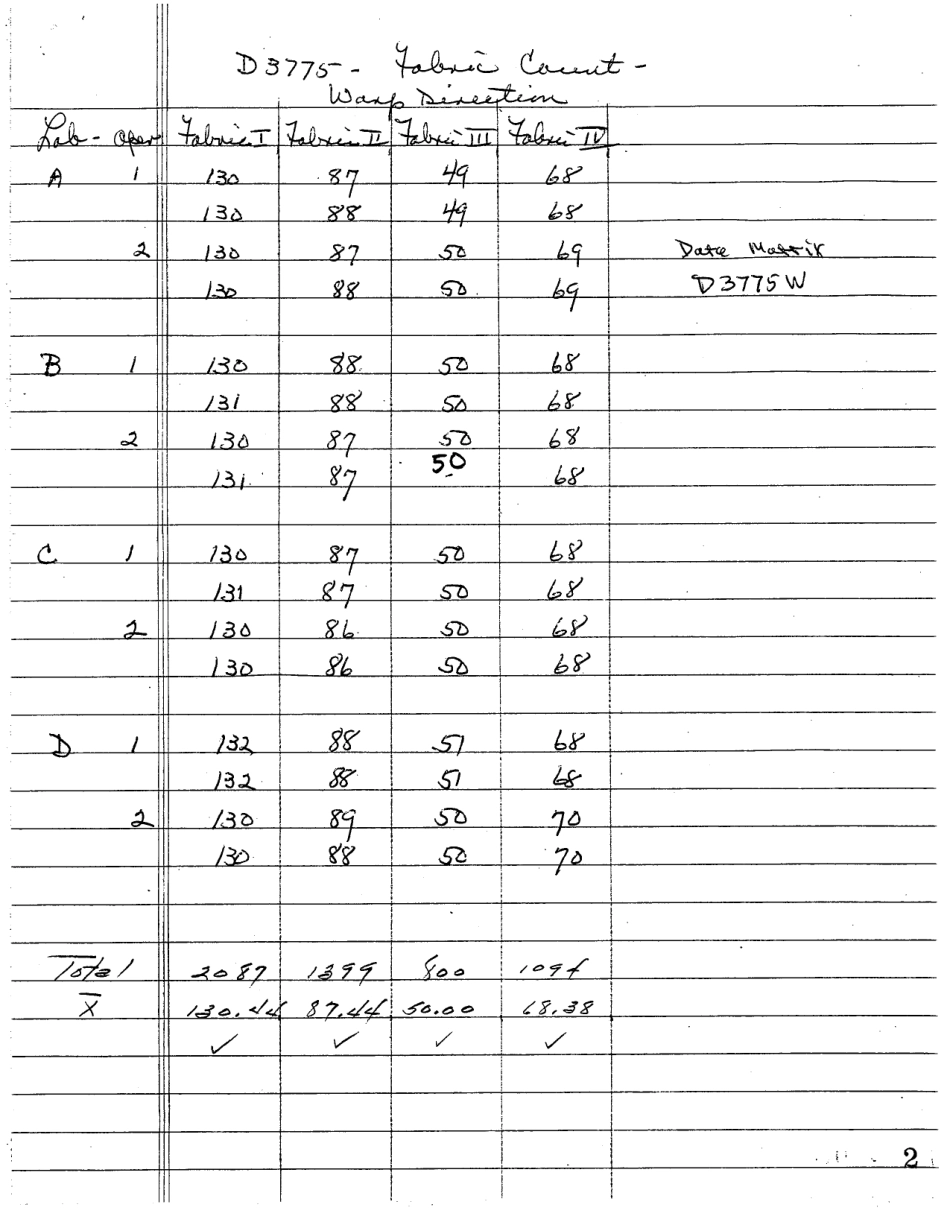 D3775 - Fabric Count -
Warp Direction
Lab - Oper Fabric I Fabric II Fabric III Fabric IV
A 1 130 87 49 68
130 88 49 68
2 130 87 50 69 Data Matrix
130 88 50 69 D3775W
B 1 130 88 50 68
131 88 50 68
2 130 87 50 68
131 87 50 68
C 1 130 87 50 68
131 87 50 68
2 130 86 50 68
130 86 50 68
D 1 132 88 51 68
132 88 51 68
2 130 89 50 70
130 88 50 70
Total 2087 1399 800 1094
X̄ 130.44 87.44 50.00 68.38
✓ ✓ ✓ ✓
2